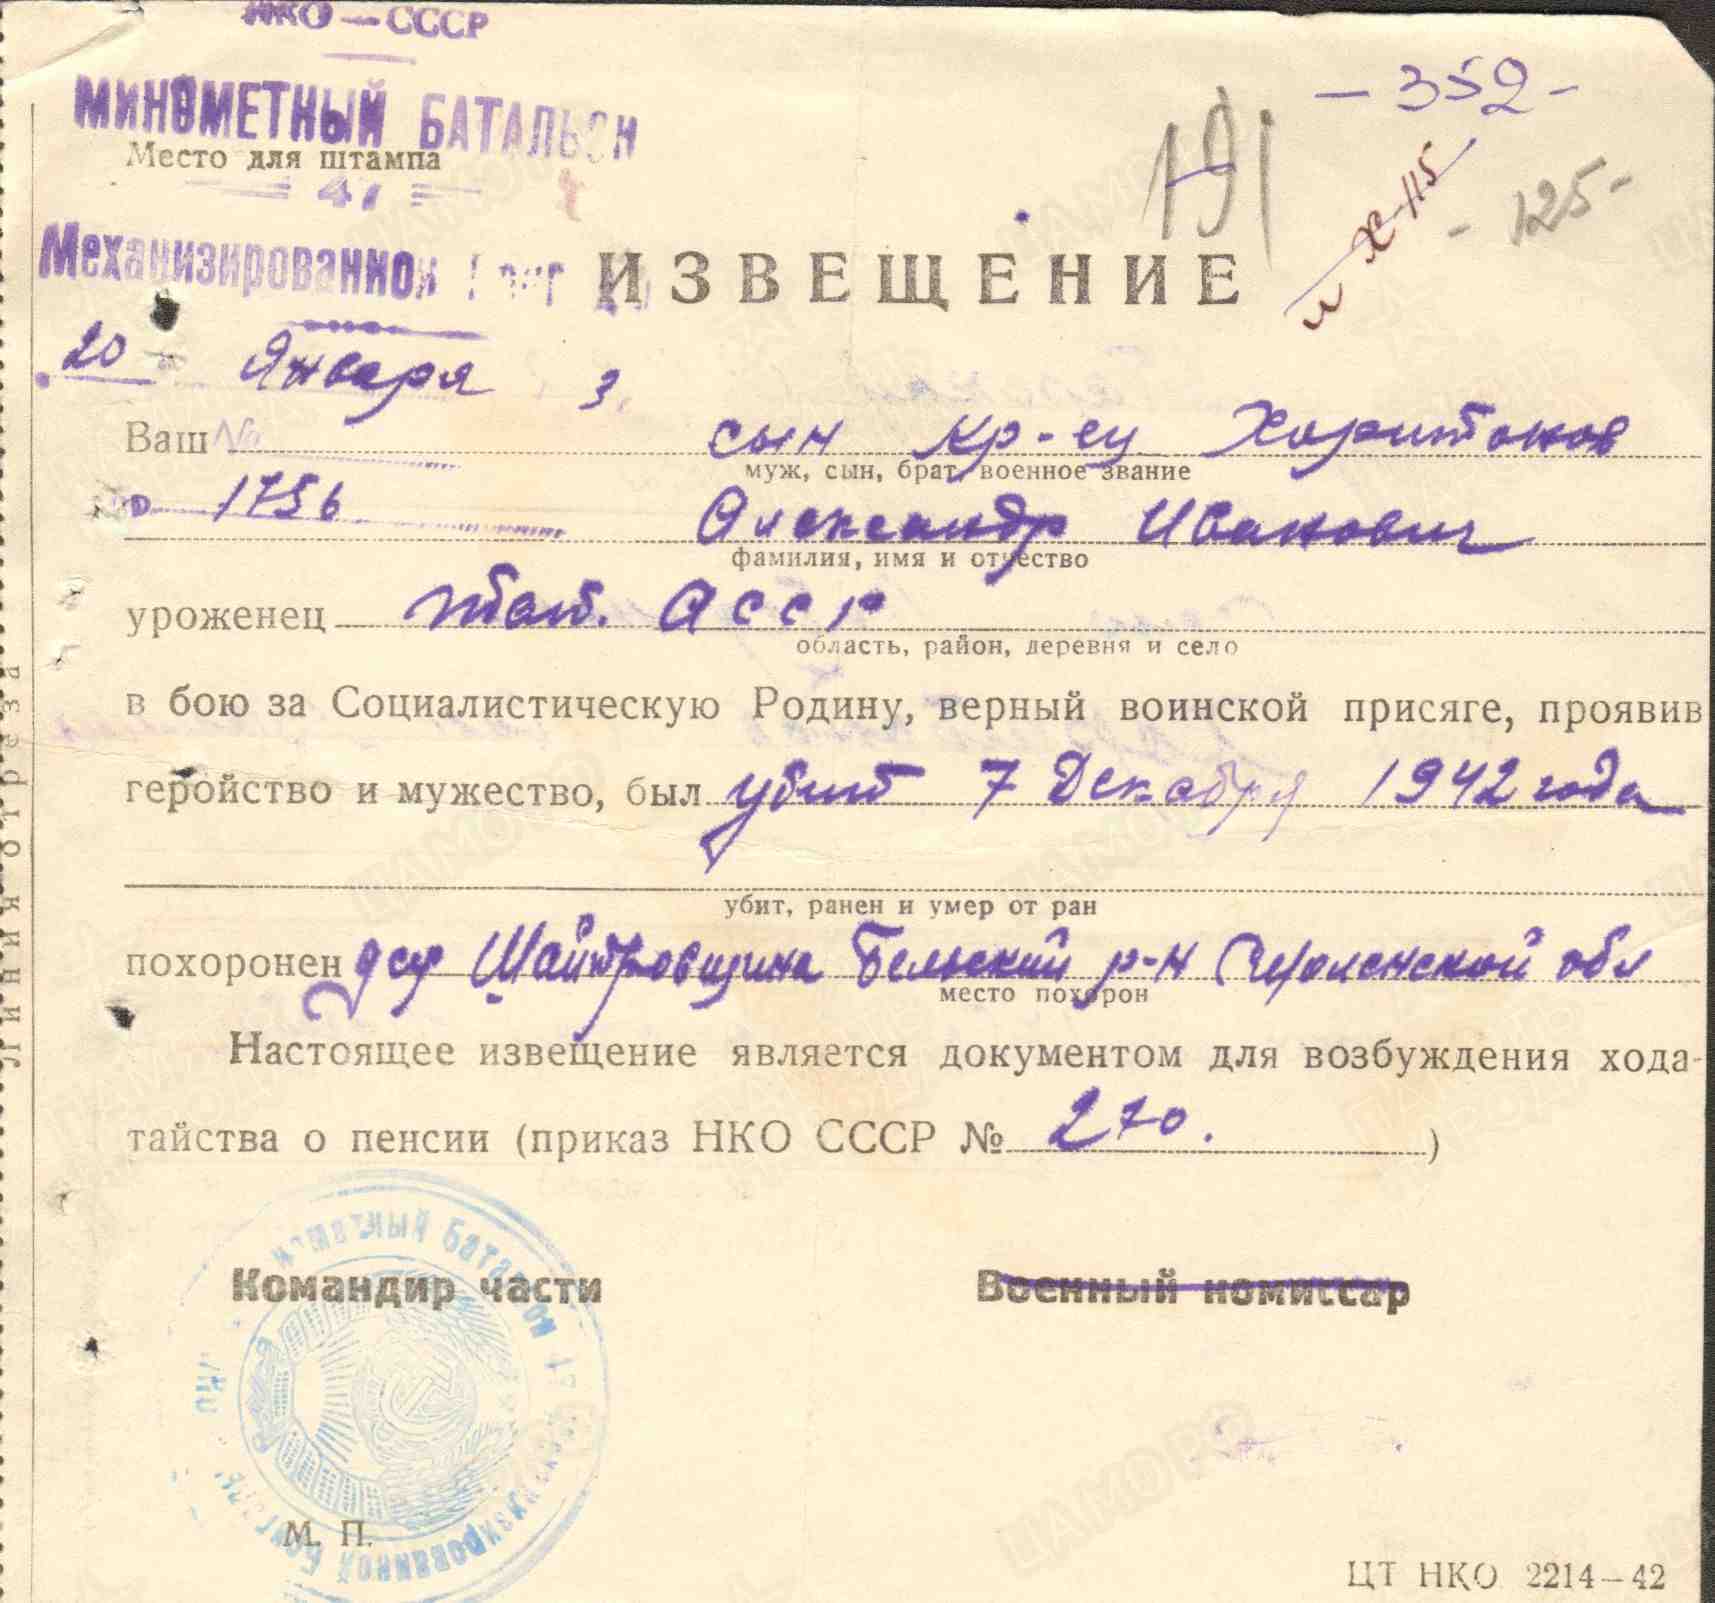 НКО — СССР
МИНОМЕТНЫЙ БАТАЛЬОН
Место для штампа
47
Механизированной
- 352 -
191
- 125 -
ИЗВЕЩЕНИЕ
20 Января 3
Ваш сын кр-ец Харитонов
муж, сын, брат военное звание
№ 1756 Александр Иванович
фамилия, имя и отчество
уроженец тат. АССР
область, район, деревня и село
в бою за Социалистическую Родину, верный воинской присяге, проявив
геройство и мужество, был убит 7 Декабря 1942 года
убит, ранен и умер от ран
похоронен дер Шайтровщина Бельский р-н Смоленской обл
место похорон
Настоящее извещение является документом для возбуждения хода-
тайства о пенсии (приказ НКО СССР № 270. )
Командир части Военный комиссар
Минометный Батальон 47 Механизированной Бригады НКО
М. П.
ЦТ НКО 2214—42
Линия отреза